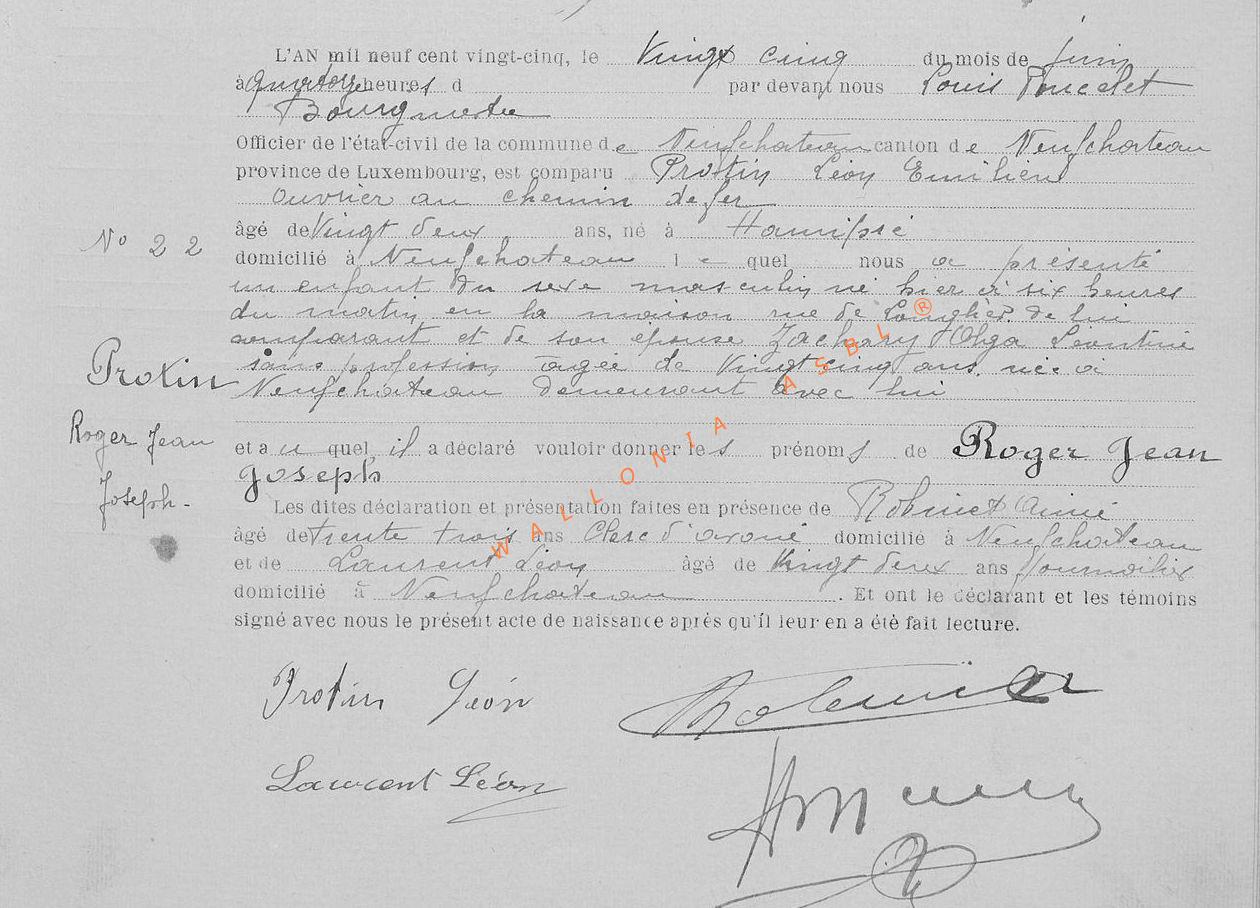 L'AN mil neuf cent vingt-cinq, le Vingt cinq du mois de juin
à quatorze heures d par devant nous Louis Poncelet
Bourgmestre
Officier de l'état-civil de la commune de Neufchateau canton de Neufchateau
province de Luxembourg, est comparu Protin Léon Emilien
ouvrier au chemin de fer
âgé de Vingt deux ans, né à Hamipré
N° 22
domicilié à Neufchateau le quel nous a présenté
un enfant du sexe masculin né hier à six heures
du matin en la maison rue de de lui
comparant et de son épouse Zachary Olga Léontine
sans profession agée de Vingt cinq ans, née à
Neufchateau demeurant avec lui
Protin
Roger Jean
Joseph.
et a u quel, il a déclaré vouloir donner les prénoms de Roger Jean
Joseph
Les dites déclaration et présentation faites en présence de Robinet Aimé
âgé de trente trois ans Clerc d'avoué domicilié à Neufchateau
et de Laurent Léon âgé de Vingt deux ans Journalier
domicilié à Neufchateau . Et ont le déclarant et les témoins
signé avec nous le présent acte de naissance après qu'il leur en a été fait lecture.
WALLONIA ASBL ®
Protin Léon
Laurent Léon